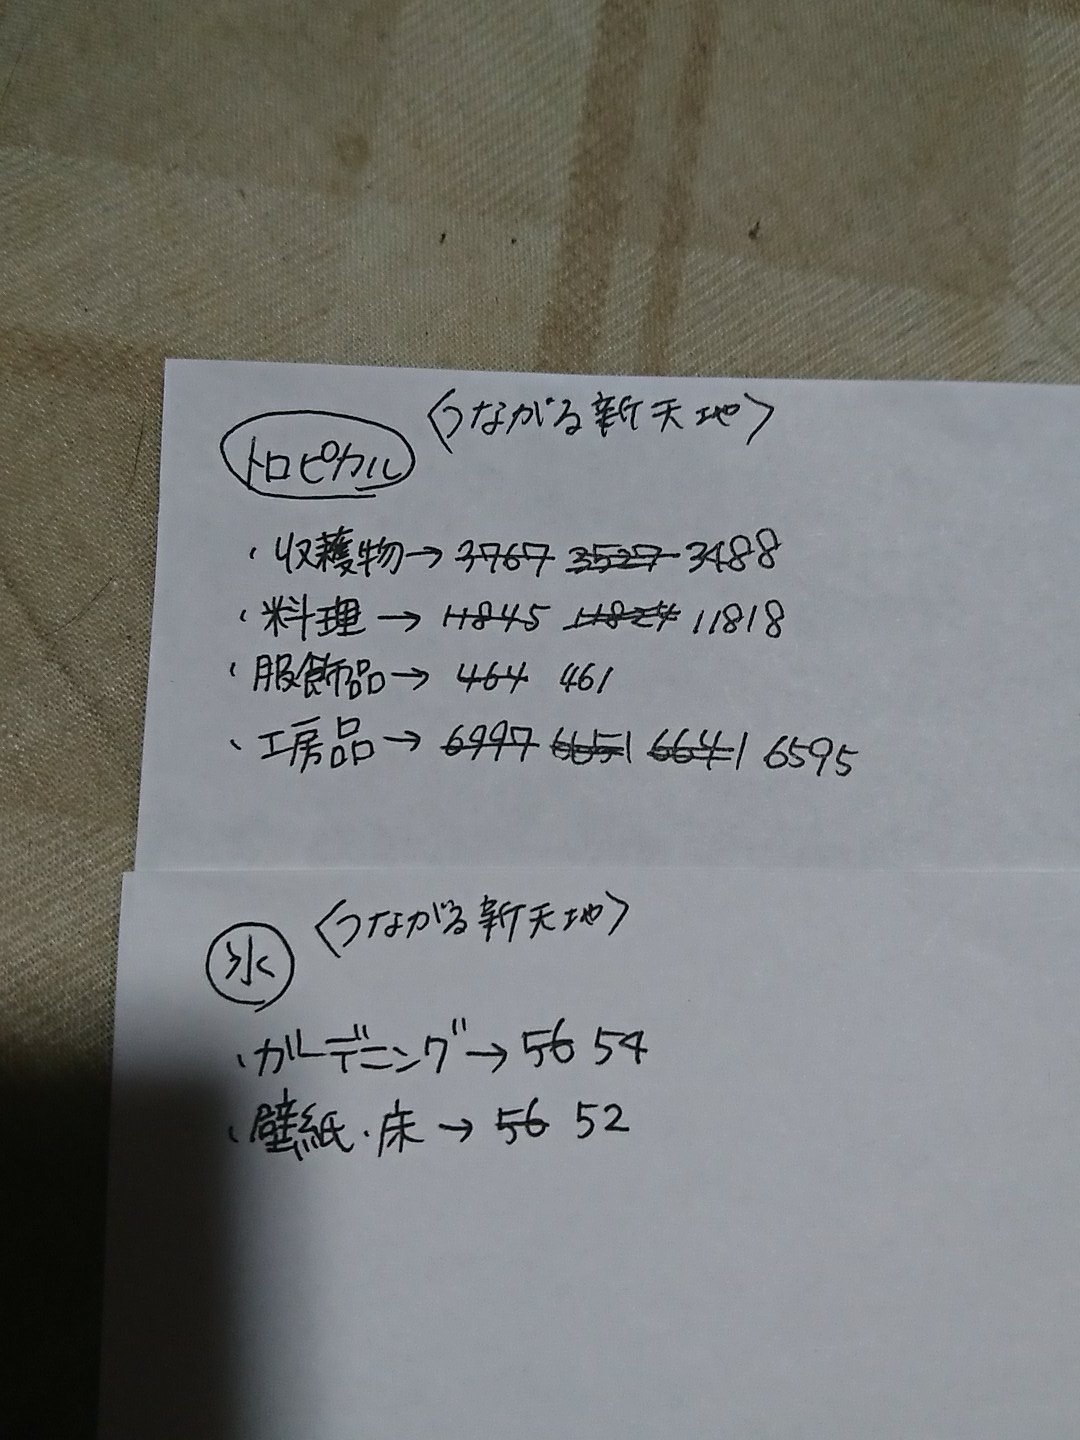 〈つながる新天地〉
トロピカル
・収穫物→3767 3527 3488
・料理→11845 11824 11818
・服飾品→464 461
・工房品→6997 6651 6641 6595
〈つながる新天地〉
氷
・ガーデニング→56 54
・壁紙・床→56 52